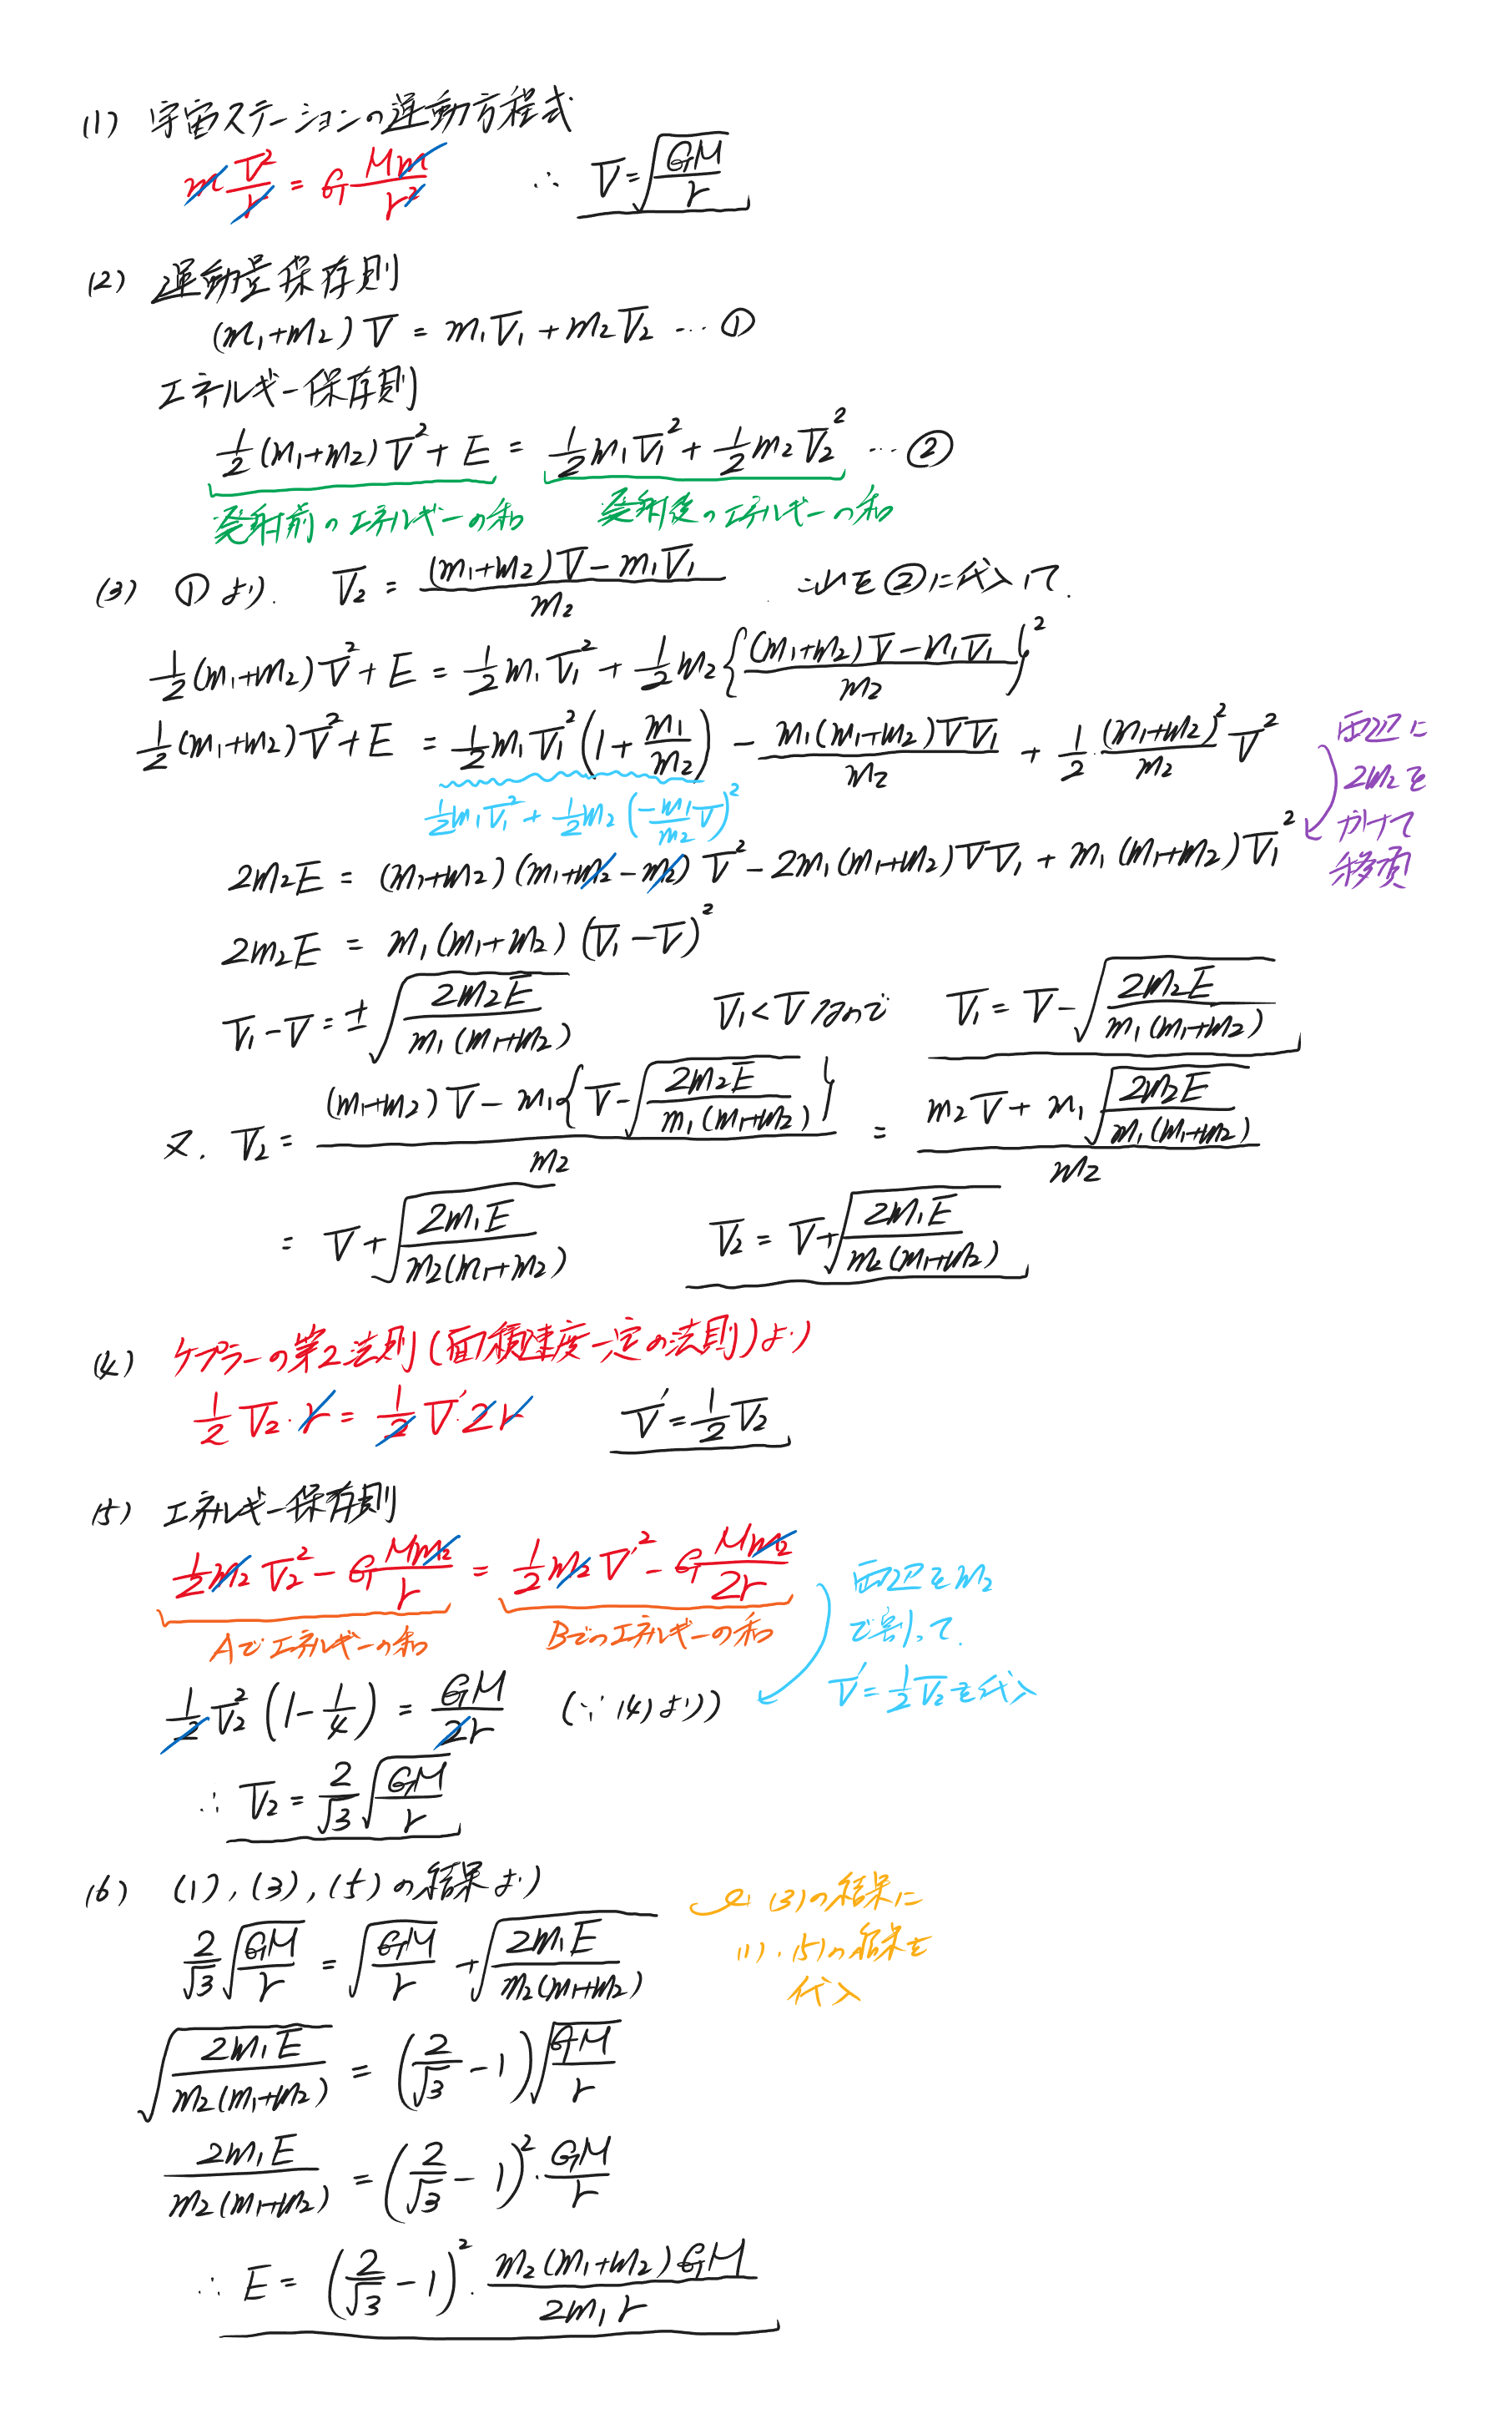 (1) 宇宙ステーションの運動方程式
m V²/r = G Mm/r² ∴ V=√(GM/r)
(2) 運動量保存則
(m₁+m₂)V = m₁V₁+m₂V₂ … ①
エネルギー保存則
1/2(m₁+m₂)V²+E = 1/2 m₁V₁²+1/2 m₂V₂² … ②
発射前のエネルギーの和 発射後のエネルギーの和
(3) ①より. V₂ = ((m₁+m₂)V−m₁V₁)/m₂ これを②に代入して.
1/2(m₁+m₂)V²+E = 1/2 m₁V₁²+1/2 m₂{((m₁+m₂)V−m₁V₁)/m₂}²
1/2(m₁+m₂)V²+E = 1/2 m₁V₁²(1+m₁/m₂) − m₁(m₁+m₂)VV₁/m₂ + 1/2・(m₁+m₂)²/m₂ V²
1/2 m₁V₁²+1/2 m₂(−m₁/m₂ V)²
両辺に
2m₂を
かけて
移項
2m₂E = (m₁+m₂)(m₁+m₂−m₂)V²−2m₁(m₁+m₂)VV₁+m₁(m₁+m₂)V₁²
2m₂E = m₁(m₁+m₂)(V₁−V)²
V₁−V=±√(2m₂E/m₁(m₁+m₂)) V₁<Vなので V₁=V−√(2m₂E/m₁(m₁+m₂))
又. V₂= ((m₁+m₂)V−m₁{V−√(2m₂E/m₁(m₁+m₂))})/m₂ = (m₂V+m₁√(2m₂E/m₁(m₁+m₂)))/m₂
= V+√(2m₁E/m₂(m₁+m₂)) V₂=V+√(2m₁E/m₂(m₁+m₂))
(4) ケプラーの第2法則(面積速度一定の法則)より
1/2 V₂・r = 1/2 V'・2r V'=1/2 V₂
(5) エネルギー保存則
1/2 m₂V₂²−G Mm₂/r = 1/2 m₂V'²−G Mm₂/2r
Aでエネルギーの和 Bでのエネルギーの和
両辺をm₂
で割って.
V'=1/2 V₂を代入
1/2 V₂²(1−1/4) = GM/2r (∵(4)より)
∴ V₂=2/√3 √(GM/r)
(6) (1),(3),(5)の結果より
(3)の結果に
(1).(5)の結果を
代入
2/√3 √(GM/r) = √(GM/r)+√(2m₁E/m₂(m₁+m₂))
√(2m₁E/m₂(m₁+m₂)) = (2/√3−1)√(GM/r)
2m₁E/m₂(m₁+m₂) = (2/√3−1)²・GM/r
∴ E= (2/√3−1)²・m₂(m₁+m₂)GM/2m₁r